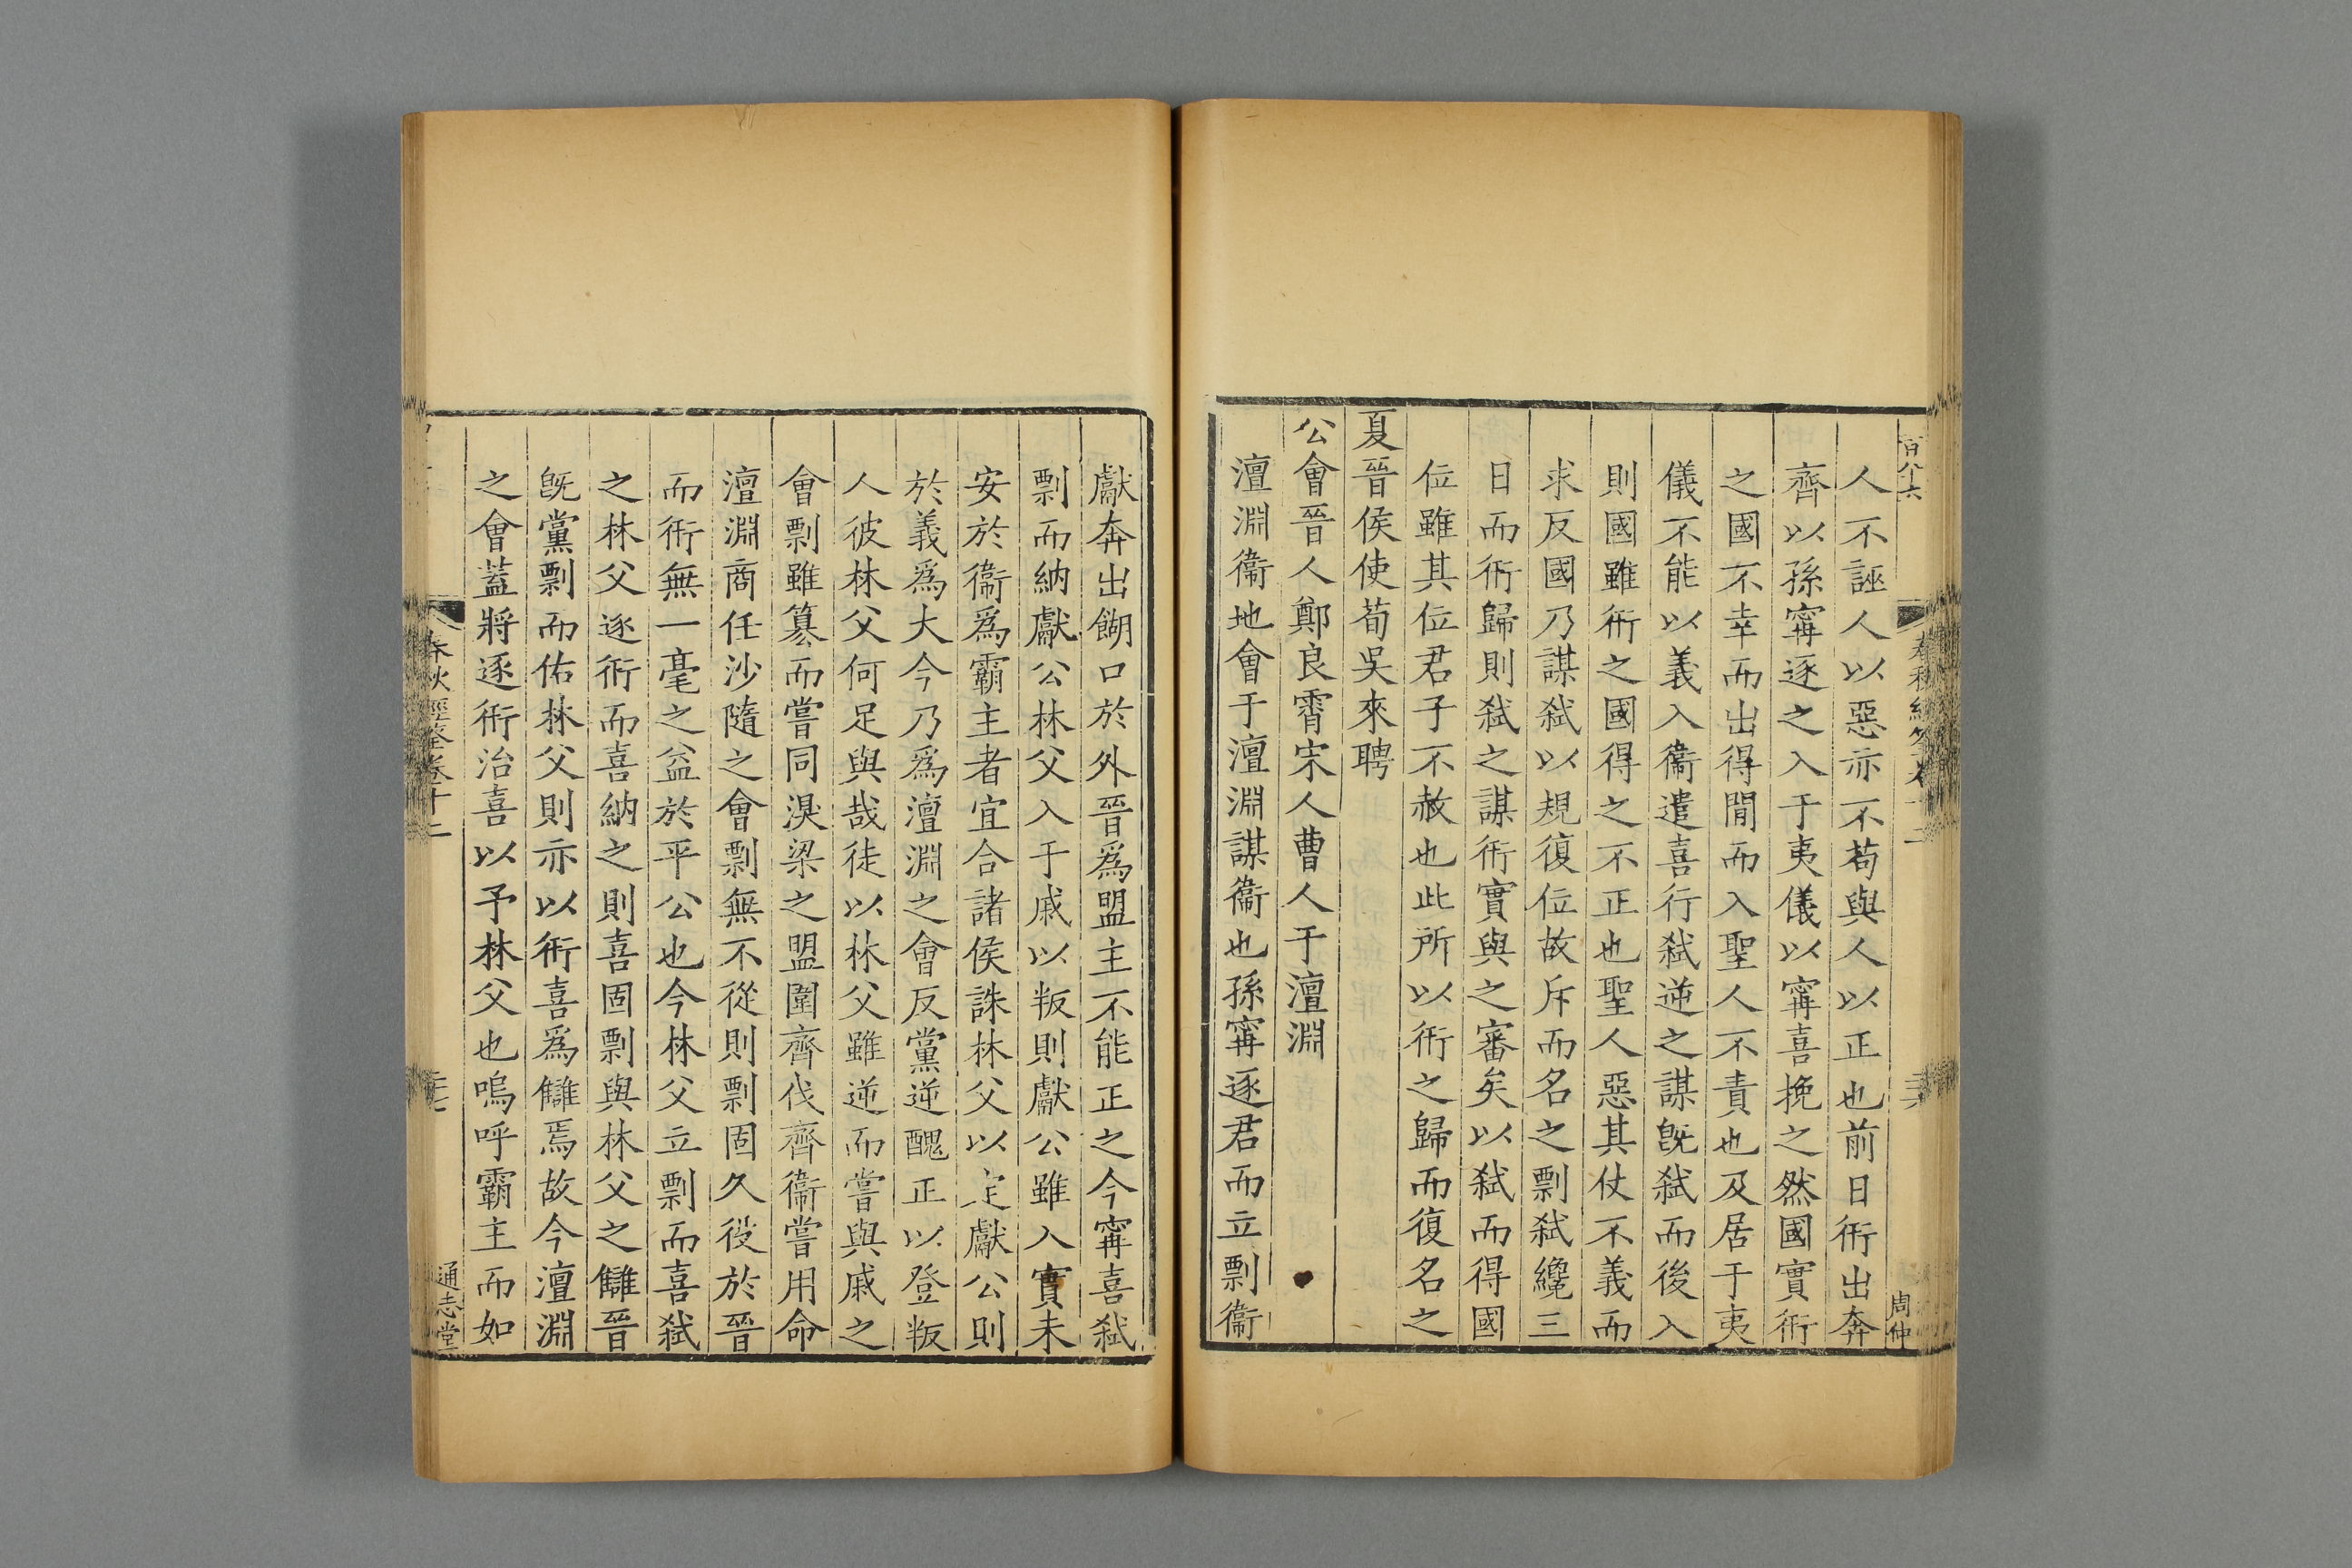 人不誣人以惡亦不苟與人以正也前日衎出奔
齊以孫甯逐之入于夷儀以甯喜挽之然國實衎
之國不幸而出得間而入聖人不責也及居于夷
儀不能以義入衞遣喜行弑逆之謀旣弑而後入
則國雖衎之國得之不正也聖人惡其仗不義而
求反國乃謀弑以規復位故斥而名之剽弑纔三
日而衎歸則弑之謀衎實與之審矣以弑而得國
位雖其位君子不赦也此所以衎之歸而復名之
夏晉侯使荀吳來聘
公會晉人鄭良霄宋人曹人于澶淵
澶淵衞地會于澶淵謀衞也孫甯逐君而立剽衞
獻奔出餬口於外晉爲盟主不能正之今甯喜弑
剽而納獻公林父入于戚以叛則獻公雖入實未
安於衞爲霸主者宜合諸侯誅林父以定獻公則
於義爲大今乃爲澶淵之會反黨逆醜正以登叛
人彼林父何足與哉徒以林父雖逆而嘗與戚之
會剽雖簒而嘗同湨梁之盟圍齊伐齊衞嘗用命
澶淵商任沙隨之會剽無不從則剽固久役於晉
而衎無一毫之益於平公也今林父立剽而喜弑
之林父逐衎而喜納之則喜固剽與林父之讎晉
旣黨剽而佑林父則亦以衎喜爲讎焉故今澶淵
之會蓋將逐衎治喜以予林父也嗚呼霸主而如
百八十六
周仲
春秋經筌卷十二
通志堂